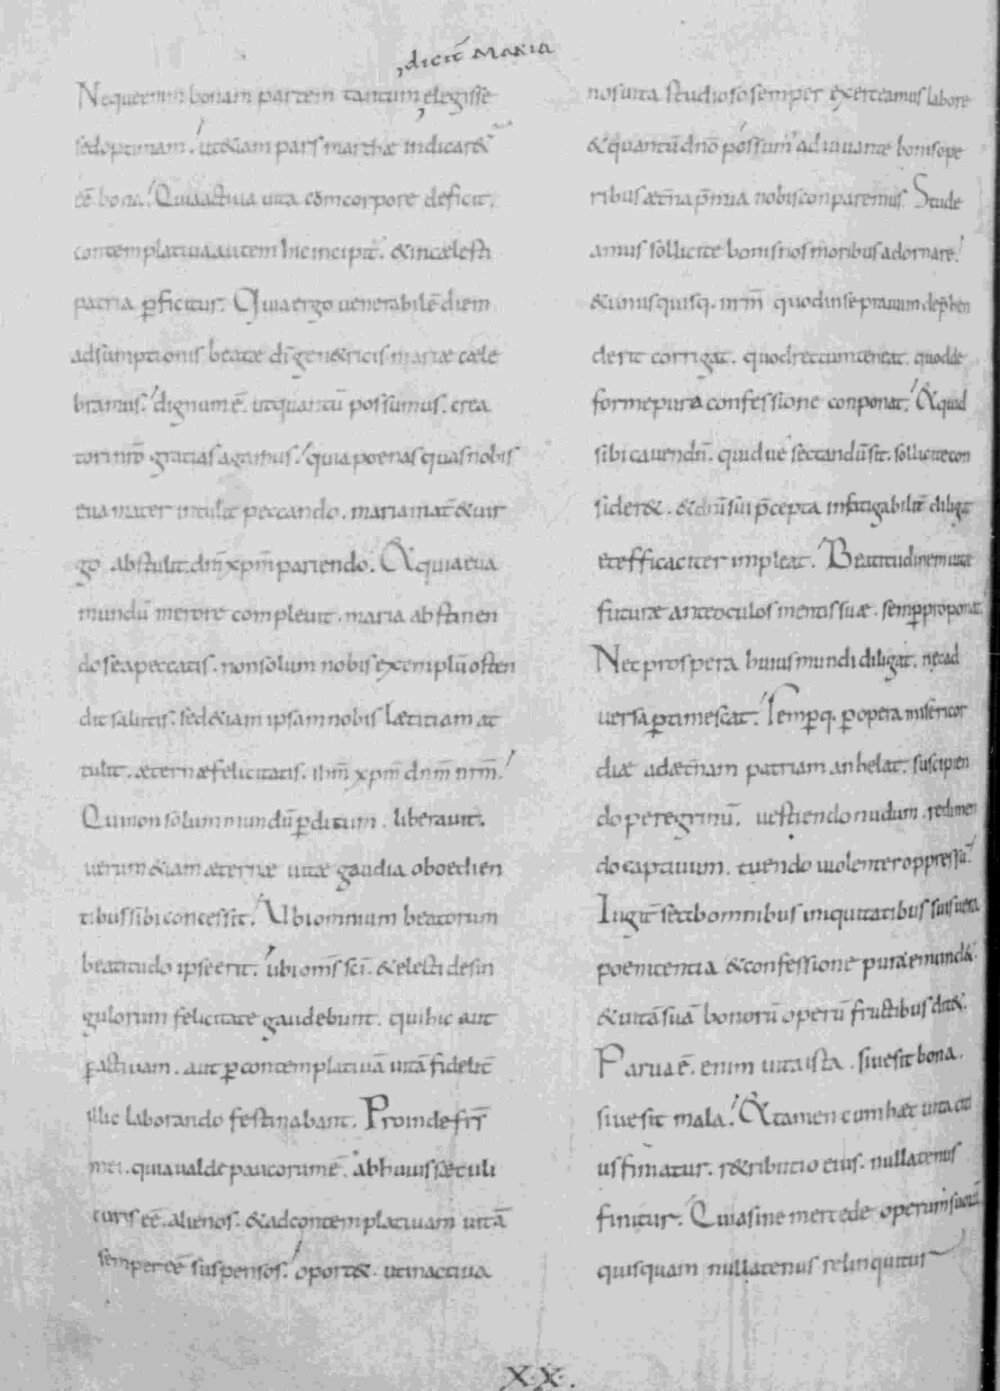 dicit̄ MARIA
Nequeenim bonam partem tantum, elegisse
sedoptimam. ut&iam pars marthæ indicar&
eē bona. Quiaactiua uita cōmcorpore deficit.
contemplatiuaautem hic incipit̄. &incælesti
patria ꝑficitur. Quiaergo uenerabilē diem
adsumptionis beatæ dī gen&ricis mariæ cæle
bramus. dignumē. utquantū possumus. crea
torinr̄o gratiasagamus. quia poenasquasnobis
eua mater intulit peccando. mariamat̄ &uir
go abstulit. dn̄m xp̄m pariendo. &quiaeua
mundū merore compleuit. maria abstinen
doseapeccatis. nonsolum nobisexemplū osten
dit salutis. sed&iam ipsam nobis lætitiam at
tulit. æternæfelicitatis. ih̄m xp̄m dn̄m nr̄m.
Quinon solummundū ꝑditum. liberauit.
uerum &iam æternæ uitæ gaudia oboedien
tibussibiconcessit. Vbiomnium beatorum
beatitudo ipseerit. ubiom̄s sc̄i. &electi desin
gulorum felicitate gaudebunt. quihic aut
ꝑactiuam. aut ꝑcontemplatiuā uitā fidelit̄
illic laborando festinabant. Proindefr̄s
mei. quiaualde paucorumē. abhuiussæculi
curis eē. alienos. &adcontemplatiuam uitā
semper eē suspensos. oport& utinactiua
nosuita studiososemper exerceamus labore
&quantū dn̄o possum adiuuante bonisope
ribus æt̄na p̄mia nobisconparemus. Stude
amus sollicite bonisnosmoribusadornare.
&unusquisq. nr̄m quodinsepravum dep̄hen
derit corrigat. quodrectumteneat. quodde
formepura confessione conponat. &quid
sibicauendū. quidue sectandūsit. sollicitecon
sider&. &dn̄isui p̄cepta infatigabilit̄ diligat
etefficaciter impleat. Beatitudinemuitæ
futuræ anteoculos mentissuæ. semꝑproponat
Necprospera huiusmundidiligat. necad
uersaꝑtimescat. Semꝑq. ꝑopera misericor
diæ adæt̄nam patriam anhelat. suscipien
doperegrinū. uestiendonudum. redimen
docaptiuum. tuendo uiolenteroppressū.
Iugit̄ seabomnibus iniquitatibus suisuera
poenitentia &confessione puraemund&.
&uitāsuā bonorū operū fructibus dit&.
Paruaē. enim uitaista. siuesit bona.
siuesit mala. &tamen cumhæc uita citi
usfiniatur. r&ributio eius. nullatenus
finitur. Quiasine mercede operumsuorū
quisquam nullatenus relinquitur
XX.